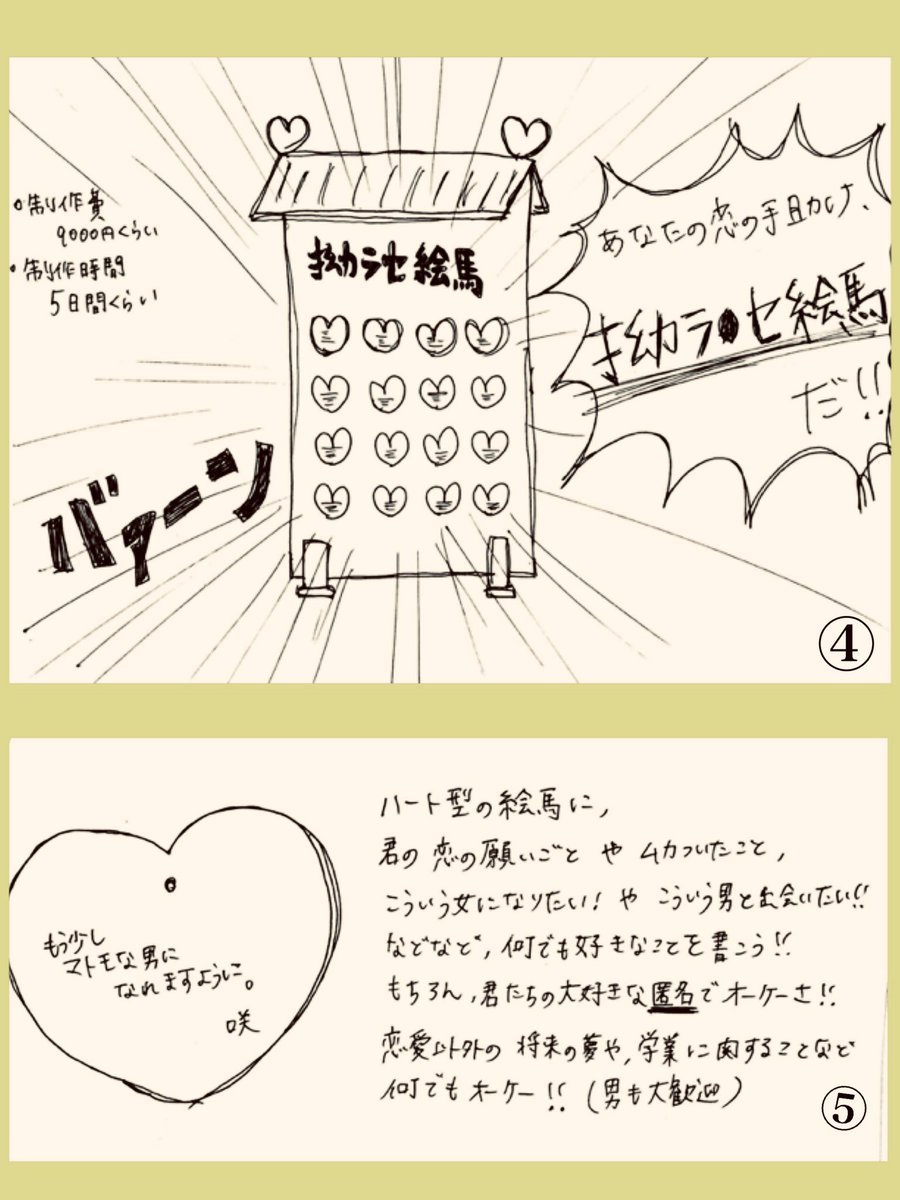 ・制作費
9000円くらい
・制作時間
5日間くらい
拗ラセ絵馬
あなたの恋の手助け、
拗ラセ絵馬
だ!!
バァーン
④
もう少し
マトモな男に
なれますように。
咲
ハート型の絵馬に,
君の恋の願いごと や ムカついたこと,
こういう女になりたい! や こういう男と出会いたい!!
などなど,何でも好きなことを書こう!!
もちろん,君たちの大好きな匿名でオーケーさ!!
恋愛以外の将来の夢や,学業に関することなど
何でもオーケー!! (男も大歓迎)
⑤